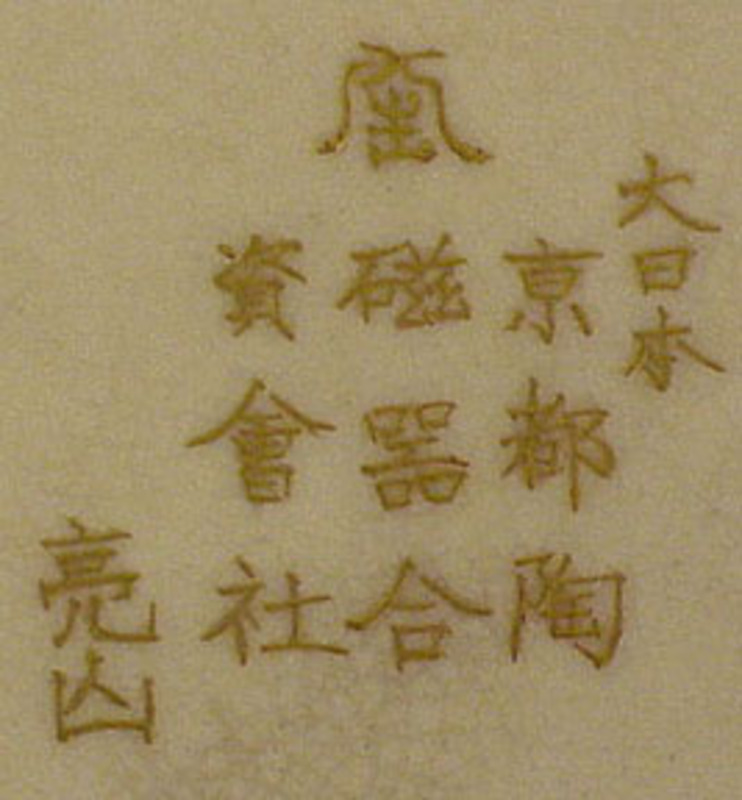 大日本
京都陶
磁器合
資會社
亮山